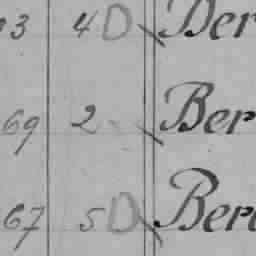 3 4 D Ber
69 2 Ber
67 5 D Ber